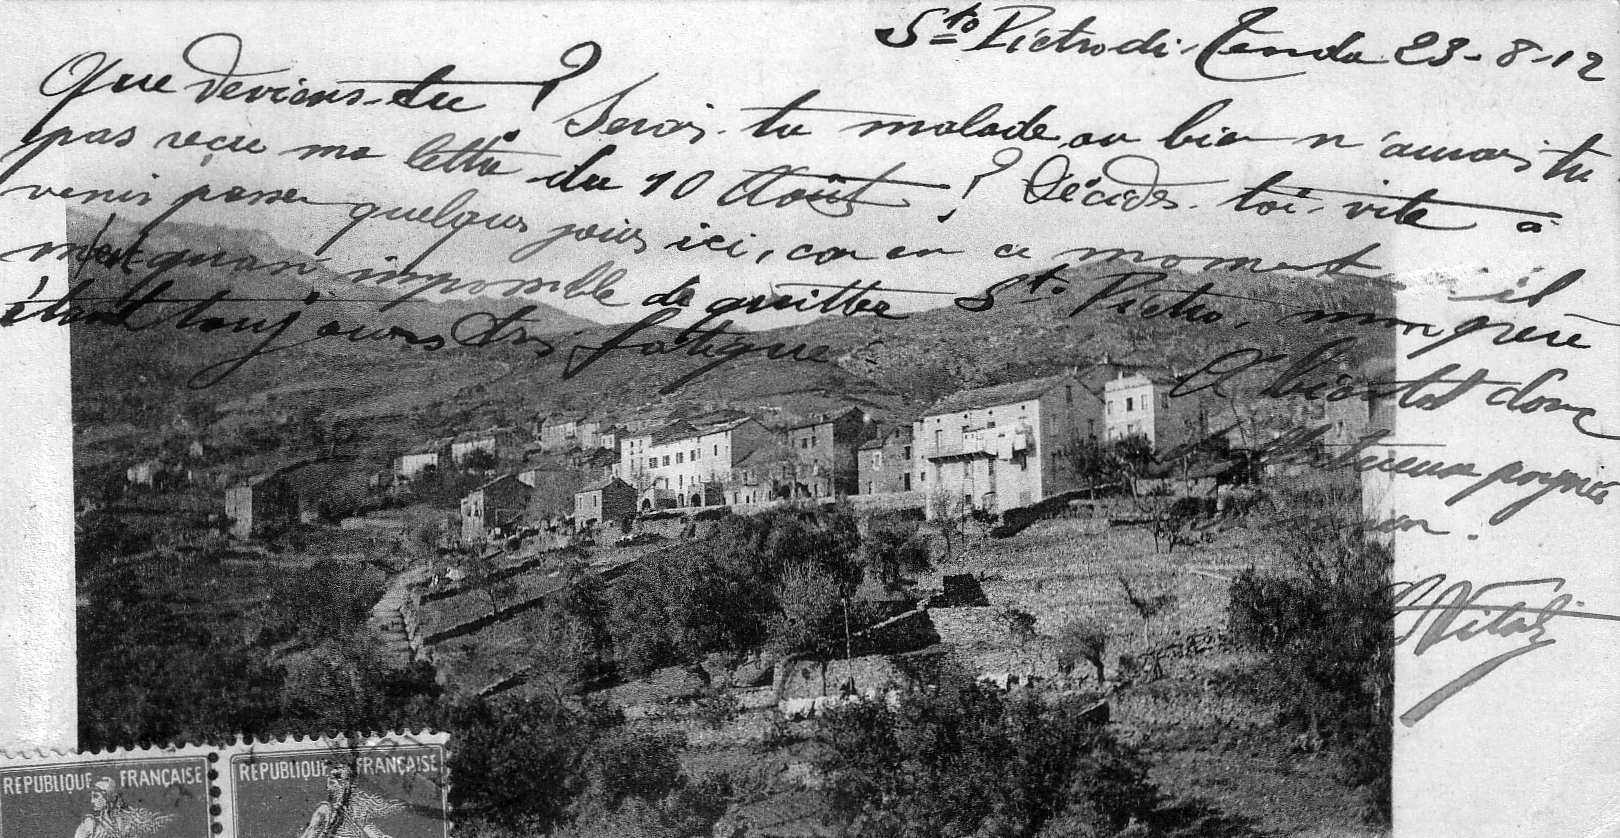 Sto Pietro di Tenda 23-8-12
Que deviens-tu ? Serais-tu malade ou bien n'aurais tu
pas reçu ma lettre du 10 Août ? Décides-toi vite à
venir passer quelques jours ici, car en ce moment il
m'est quasi impossible de quitter Sto Pietro, mon père
étant toujours très fatigué.
A bientôt donc
poignée
main.
Vitali
REPUBLIQUE FRANÇAISE
REPUBLIQUE FRANÇAISE